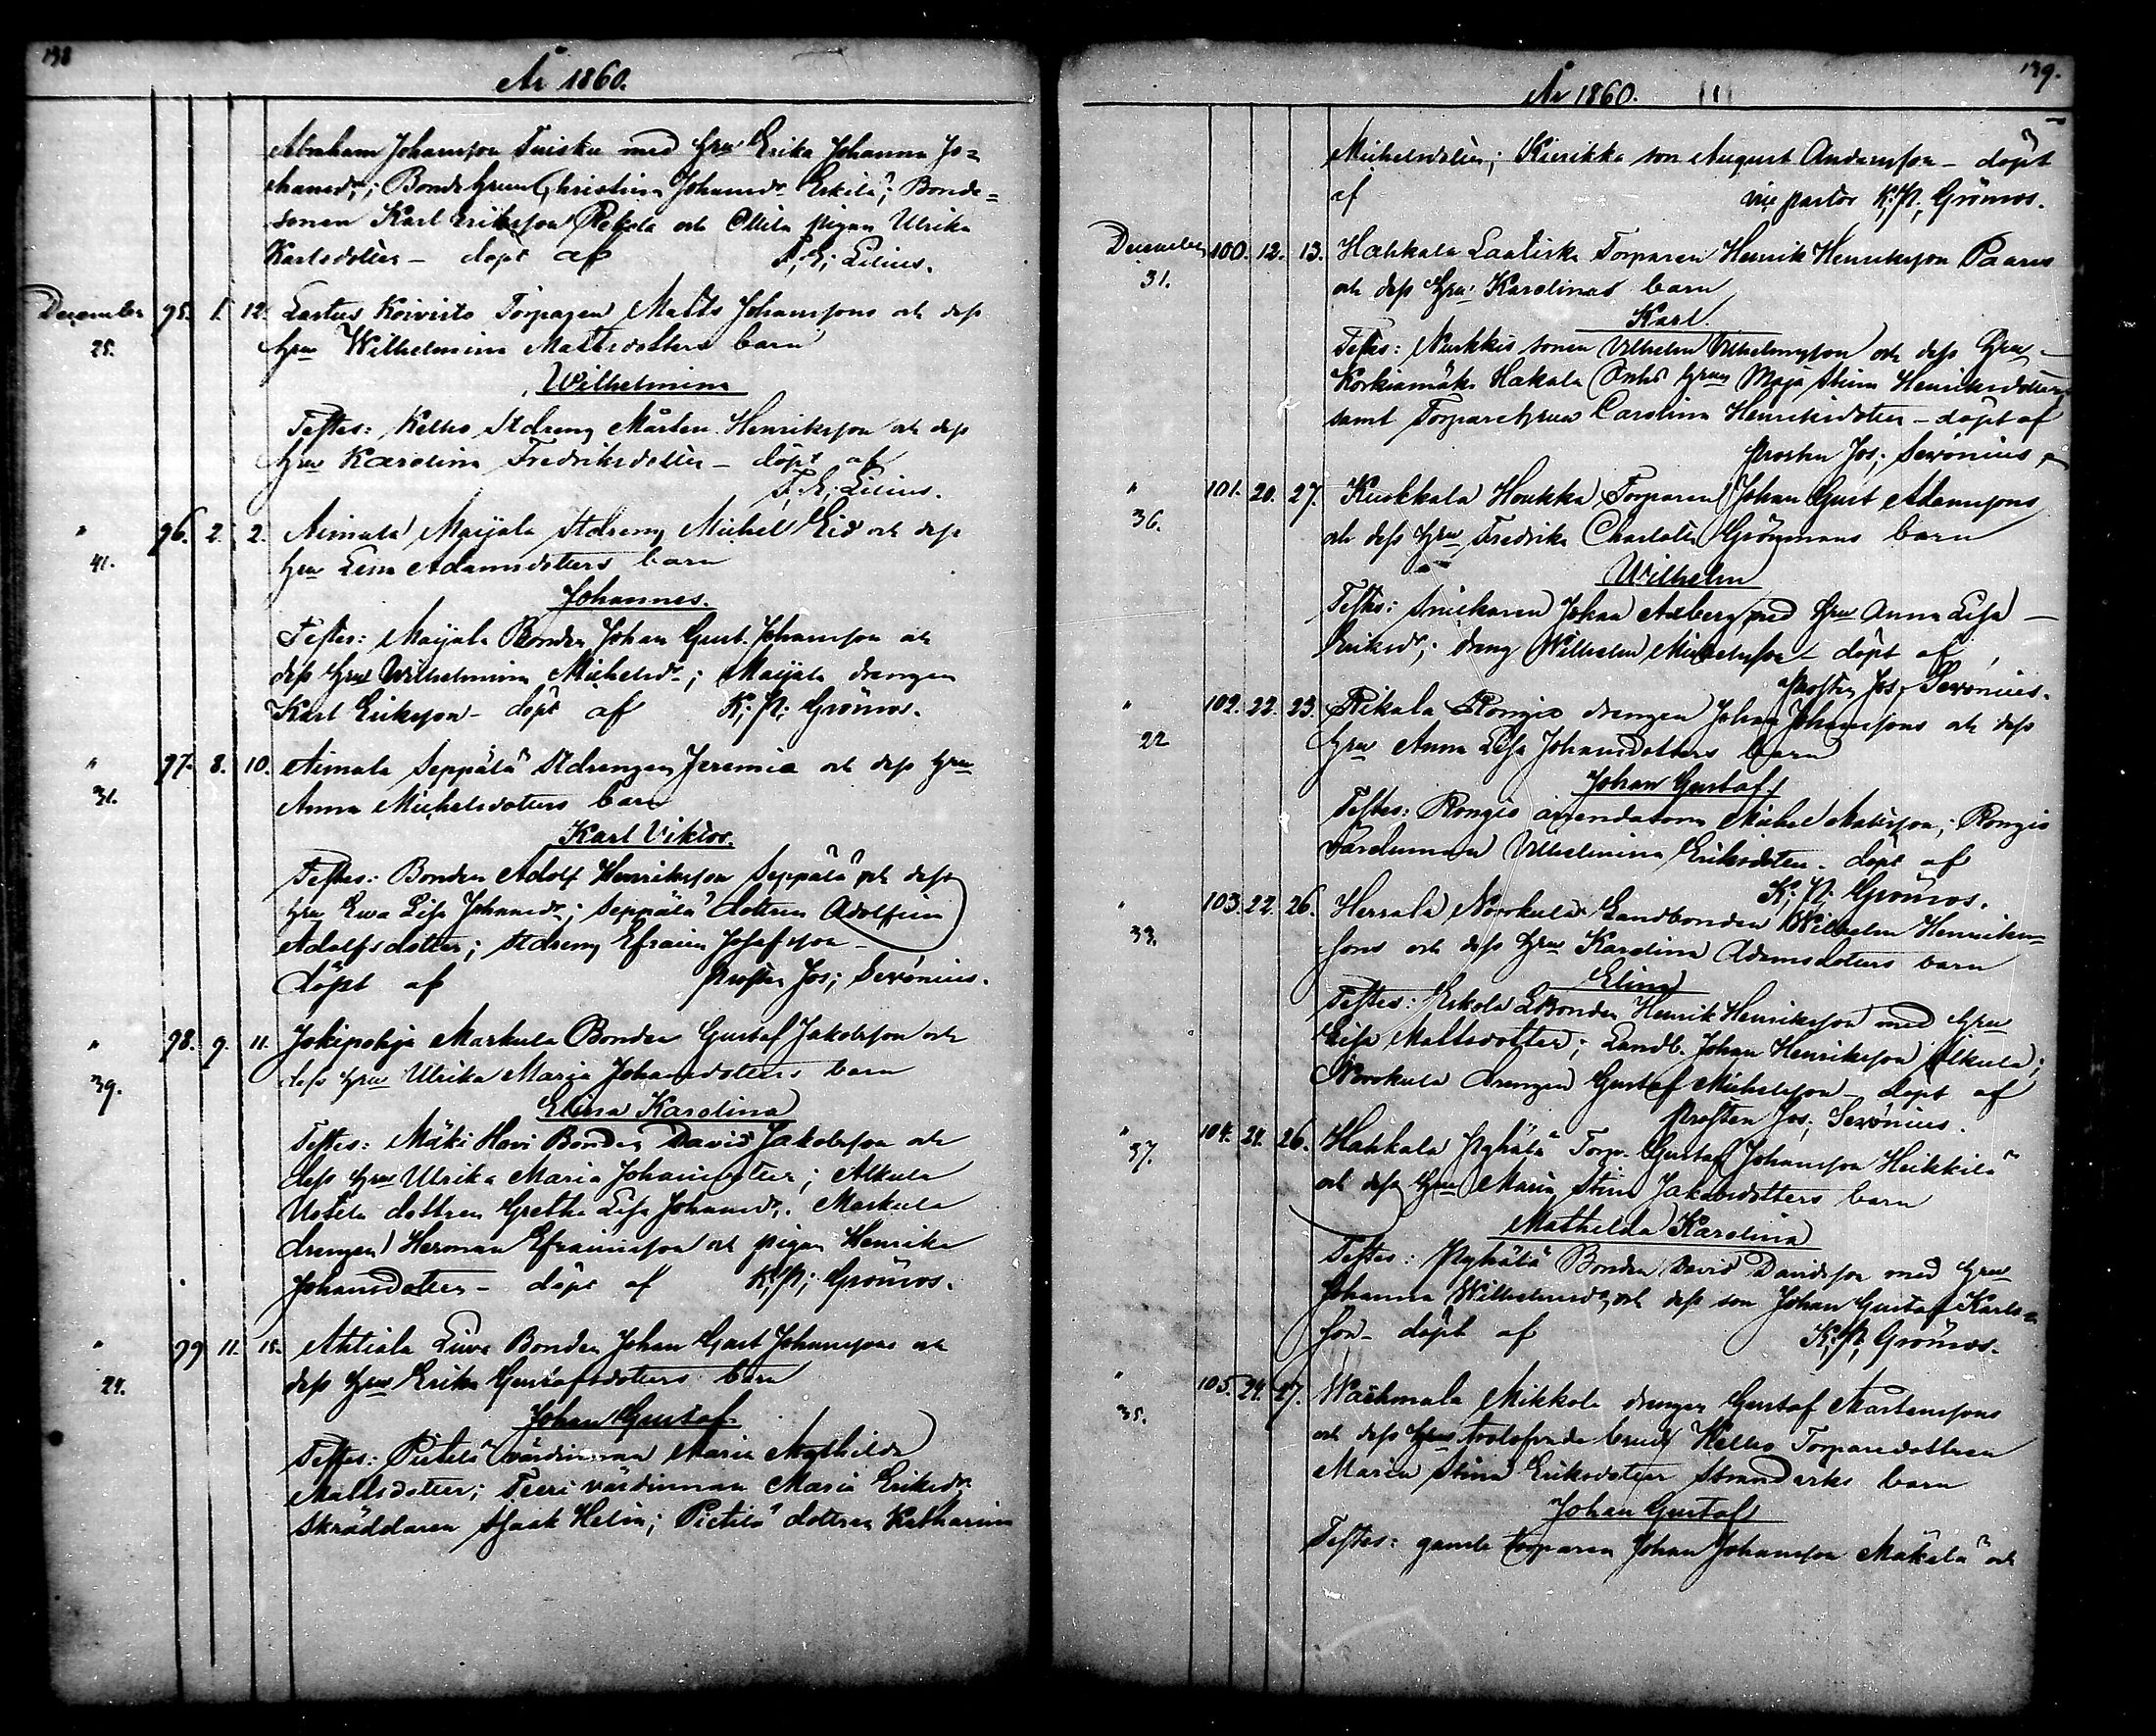 138
År 1860.
Abraham Johansson Tuisku med hru Erika Johanna Jo=
hansdr; Bonde hrun Christina Johansdr Erkilä; Bonde=
sonen Karl Eriksson Rekola och Ollila pigan Ulrika
Karlsdotter – döpt af F; E; Lilius.
December 95. 1. 12. Lastus Koivisto Torparen Matts Johanssons och dess
25. hru Wilhelmina Mattsdotters barn
Wilhelmina
Testes: Kelho Stdreng Mårten Henriksson och dess
hru Karolina Fredriksdotter – döpt af
F; E; Lilius.
" 96. 2. 2. Aimala Maijala Stdreng Michel Eid och dess
41. hru Lena Adamsdotters barn
Johannes.
Testes: Maijala Bonden Johan Gust. Johansson och
dess hru Wilhelmina Michelsdr; Maijala drengen
Karl Eriksson – döpt af K; N; Grönros.
" 97. 8. 10. Aimala Seppälä Stdrengen Jeremia och dess hru
31. Anna Michelsdotters barn
Karl Viktor.
Testes: Bonden Adolf Henriksson Seppälä och dess
hru Ewa Lisa Johansdr; Seppälä dottren Adolfina
Adolfsdotter; Stdreng Efraim Josefsson –
döpt af Prosten Jos; Serónius.
" 98. 9. 11. Jokipohja Markula Bonden Gustaf Jakobsson och
39. dess hru Ulrika Maria Johansdotters barn
Elina Karolina
Testes: Mäki Hovi Bonden David Jakobsson och
dess hru Ulrika Maria Johansdotter; Alkula
Uotila dottren Gretha Lisa Johansdr. Markula
drengen Herman Efraimsson och pigan Henrika
Johansdotter – döpt af K; N; Grönros.
" 99 11. 15. Ahtiala Liuva Bonden Johan Gust Johanssons och
24. dess hru Erika Gustafsdotters barn
Johan Gustaf.
Testes: Pietilä värdinnan Maria Mathilda
Mattsdotter; Teeri värdinnan Maria Eriksdr
Skräddaren Isaak Helin; Pietilä dottren Katharina
139.
År 1860.
Michelsdotter; Kierikka son August Andersson – döpt
af vice pastor K; N; Grönros.
December 100. 12. 13. Hakkala Laatiska Torparen Henrik Henriksson Paarus
31. och dess hru Karolinas barn
Karl.
Testes: Nurkkis sonen Vilhelm Vilhelmsson och dess hru –
Korkiamäki Hakala Enke hrun Maja Stina Henriksdotter
samt Torpare hrun Carolina Henriksdotter – döpt af
Prosten Jos; Serónius
" 101. 20. 27. Kuokkala Houkka Torparen Johan Gust Adamssons
36. och dess hru Fredrika Charlotta Grönmans barn
Wilhelm
Testes: Snickaren Johan Axberg med hru Anna Lisa –
Eriksdr; dreng Wilhelm Michelsson – döpt af
Prosten Jos; Serónius.
" 102. 22. 23. Rikala Rongio drengen Johan Johanssons och dess
22 hru Anna Lisa Johansdotters barn
Johan Gustaf.
Testes: Rongio arrendatorn Michel Mattsson; Rongio
värdinnan Vilhelmina Eriksdotter. döpt af
K; N; Grönros.
" 103. 22. 26. Herrala Norkula Landbonden Wilhelm Henriks=
33. sons och dess hru Karolina Adamsdotters barn
Elina
Testes: Eskola LBonden Henrik Henriksson med hru
Lisa Mattsdotter; Landb. Johan Henriksson Alkula;
Norrkula drengen Gustaf Michelsson – döpt af
Prosten Jos; Serónius.
" 104. 24. 26. Hakkala Pyhälä Torp. Gustaf Johansson Heikkilä
37. och dess hru Maria Stina Jakobsdotters barn
Mathilda Karolina
Testes: Pyhälä Bonden David Davidsson med hru
Johanna Wilhelmsdr och dess son Johan Gustaf Karls=
son – döpt af K; N; Grönros.
" 105. 24. 27. Wächmala Mikkola drengen Gustaf Mårtenssons
35. och dess hru trolofvade brud Kelho Torparedottren
Maria Stina Eriksdotter Strandarks barn
Johan Gustaf
Testes: gamle torparen Johan Johansson Mäkelä och